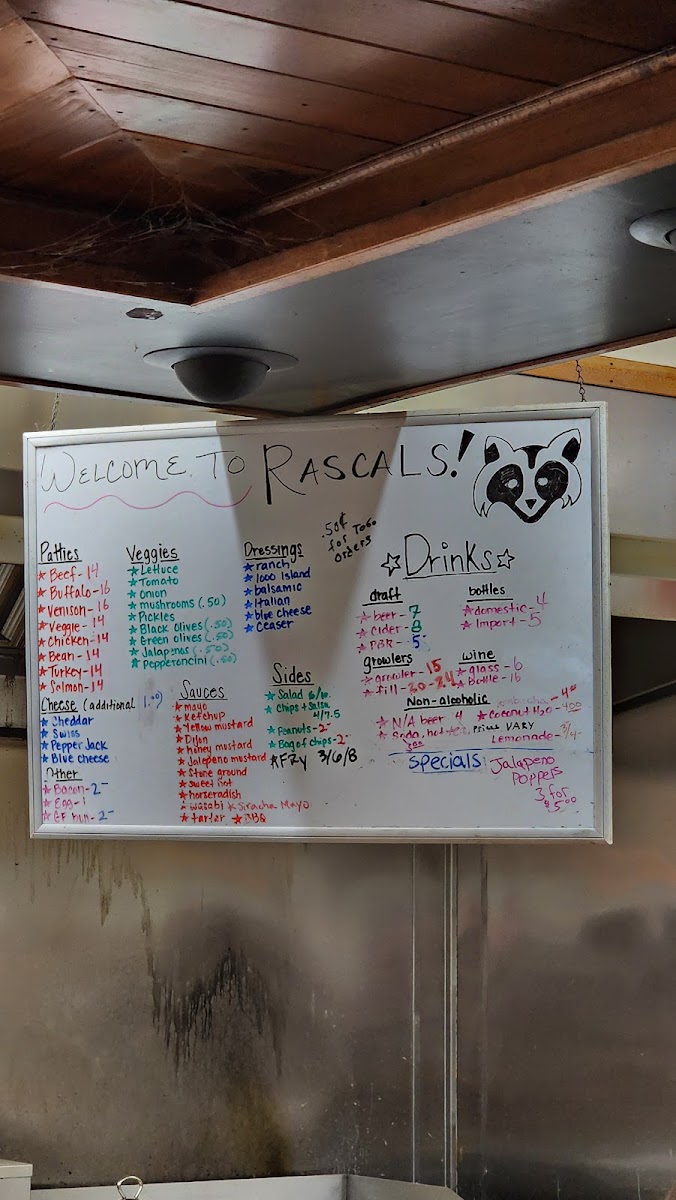 WELCOME TO RASCALS!
.50¢
for TOGO
orders
Patties
Beef - 14
Buffalo - 16
Venison - 16
Veggie - 14
Chicken - 14
Bean - 14
Turkey - 14
Salmon - 14
Cheese (additional 1.00)
Cheddar
Swiss
Pepper Jack
Blue cheese
Other
Bacon - 2
Egg - 1
GF bun - 2
Veggies
Lettuce
Tomato
onion
mushrooms (.50)
Pickles
Black olives (.50)
Green olives (.50)
Jalapenos (.50)
Pepperoncini (.50)
Sauces
mayo
Ketchup
Yellow mustard
Dijon
honey mustard
Jalapeno mustard
Stone ground
sweet hot
horseradish
wasabi Siracha Mayo
tarter BBQ
Dressings
ranch
1000 Island
balsamic
Italian
blue cheese
Ceaser
Sides
Salad 6/10
Chips + Salsa
4/7.5
Peanuts - 2
Bag of chips - 2
FZy 3/6/8
Drinks
draft
beer - 7
Cider - 8
PBR - 5
growlers
growler - 15
fill - 20 - 24
bottles
domestic - 4
Import - 5
wine
glass - 6
Bottle - 16
Non-alcoholic
N/A beer 4
Soda, hot tea,
3.00
4.00
Coconut H2O - 4.00
Price VARY
Lemonade - 3/4
Specials
Jalapeno
Poppers
3 for
$5.00